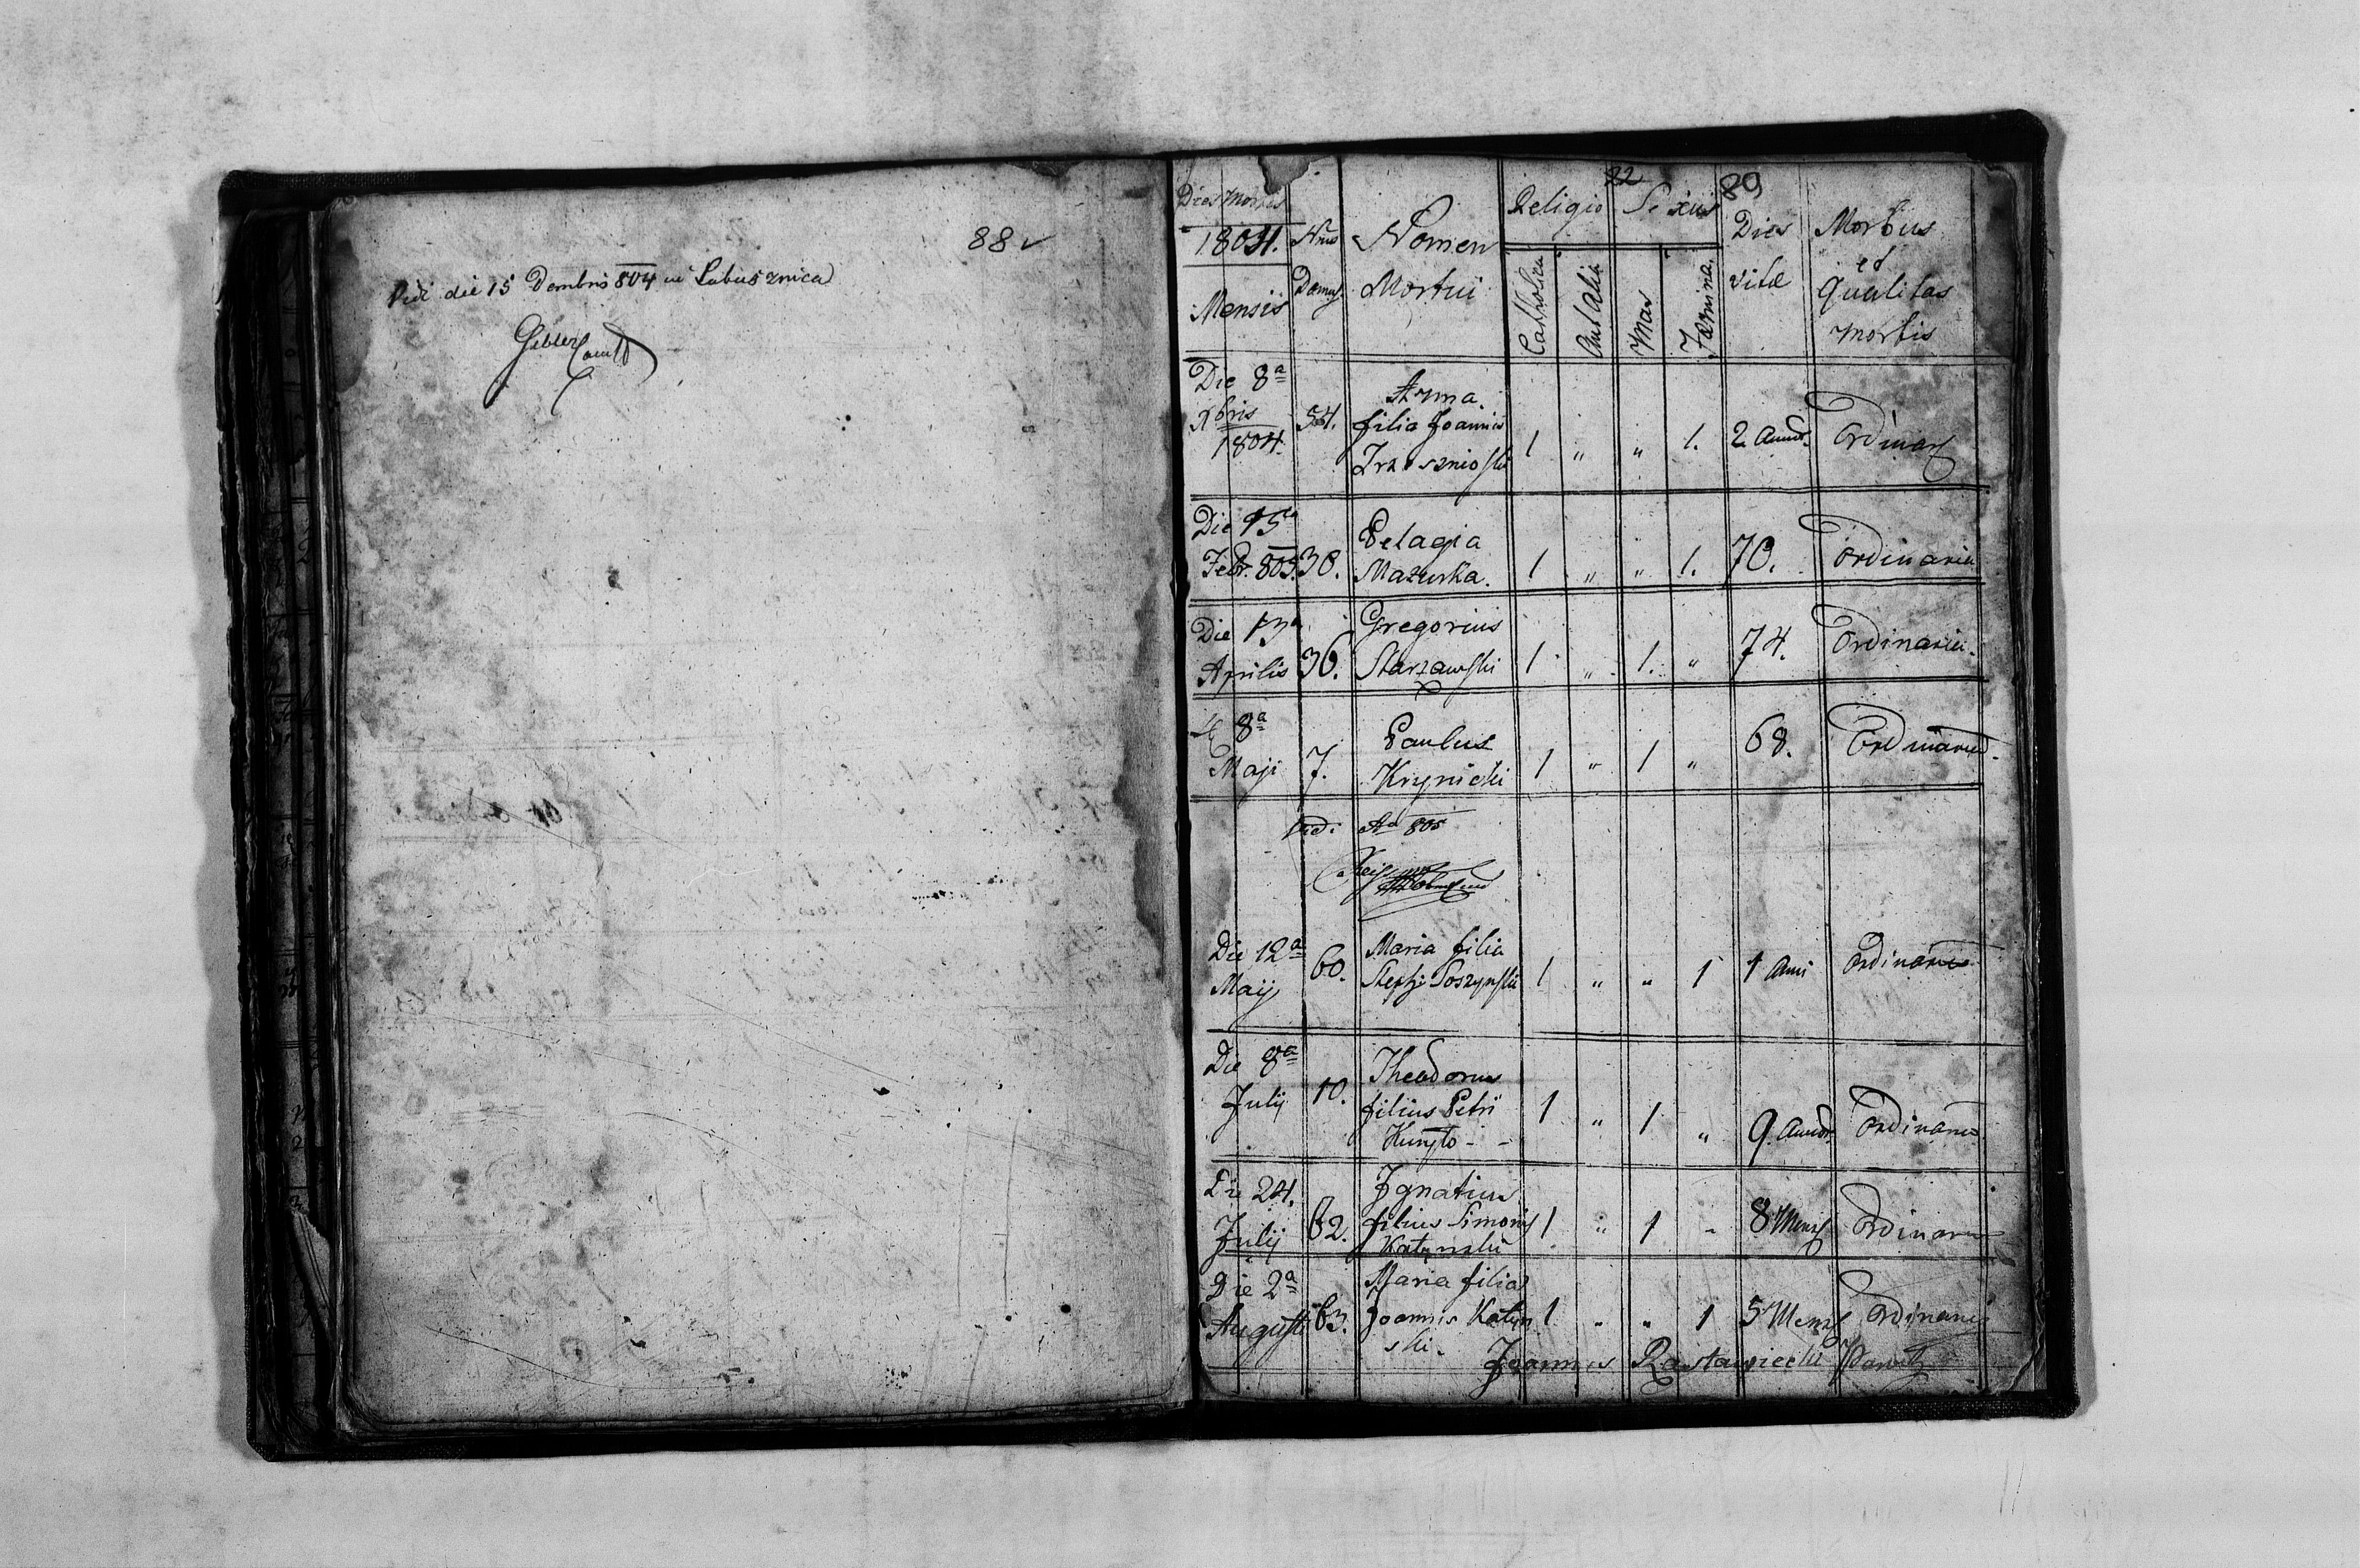 88v
Vidi die 15 Dembris 804 in Łabusznica
22
89
Dies Mortis
1804.
Mensis
Nrus
Domus
Nomen
Mortui
Religio
Catholica
Aut Alia
Sexus
Mas
Fæmina.
Dies
vitæ
Morbus
et
Qualitas
mortis
Die 8a
Xbris
1804.
54.
Anna
filia Joannis
1 „ „ 1. 2 Annor. Ordinar
Die 15a
Febr. 805. 30.
Pelagia
Mazurka. 1 „ „ 1. 70. Ordinaria
Die 13a
Aprilis 36.
Gregorius
Starzawski 1 „ 1. „ 74. Ordinaria.
8a
Maji 7.
Paulus
Krynicki 1 „ 1 „ 68. Ordinaria.
Vidi Ad 805
Die 12a
Maij 60.
Maria filia
Soszynski 1 „ „ 1 1 Anni Ordinaria
Die 8a
Julij 10.
Theodorus
filius Petri
1 „ 1 „ 9 Annor. Ordinaria
Die 24.
Julij 62.
Ignatius
filius Simonis
Katynski 1 „ 1 „ 8 Mens Ordinaria
Die 2a
Augusti 63.
Maria filia
Joannis Katyn
ski. 1 „ „ 1 5 Mens Ordinaria
Joannes Rastawiecki